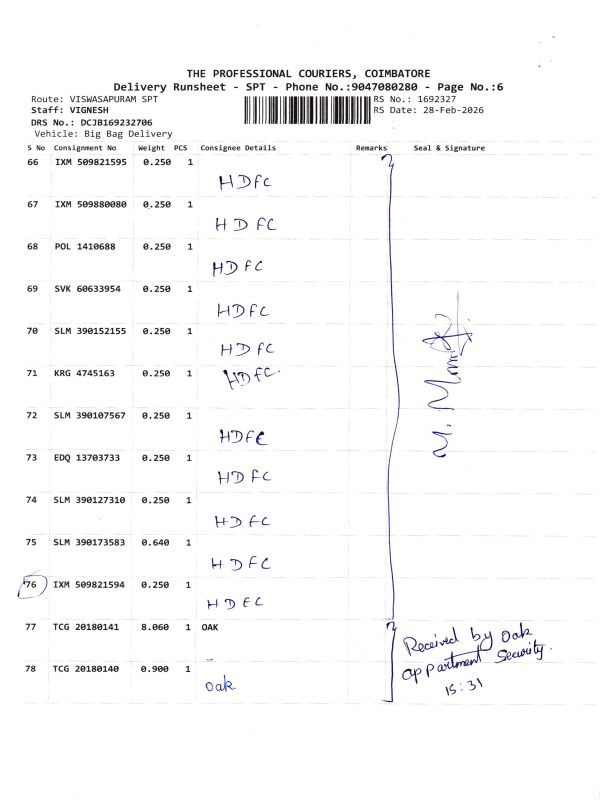 THE PROFESSIONAL COURIERS, COIMBATORE
Delivery Runsheet - SPT - Phone No.:9047080280 - Page No.:6
Route: VISWASAPURAM SPT RS No.: 1692327
Staff: VIGNESH RS Date: 28-Feb-2026
DRS No.: DCJB169232706
Vehicle: Big Bag Delivery
S No Consignment No Weight PCS Consignee Details Remarks Seal & Signature
66 IXM 509821595 0.250 1
HDFC
67 IXM 509880080 0.250 1
HDFC
68 POL 1410688 0.250 1
HDFC
69 SVK 60633954 0.250 1
HDFC
70 SLM 390152155 0.250 1
HDFC
71 KRG 4745163 0.250 1
HDFC.
72 SLM 390107567 0.250 1
HDFC
73 EDQ 13703733 0.250 1
HDFC
74 SLM 390127310 0.250 1
HDFC
75 SLM 390173583 0.640 1
HDFC
76 IXM 509821594 0.250 1
HDFC
77 TCG 20180141 8.060 1 OAK
Received by Oak
appartment Security.
15:31
78 TCG 20180140 0.900 1
Oak